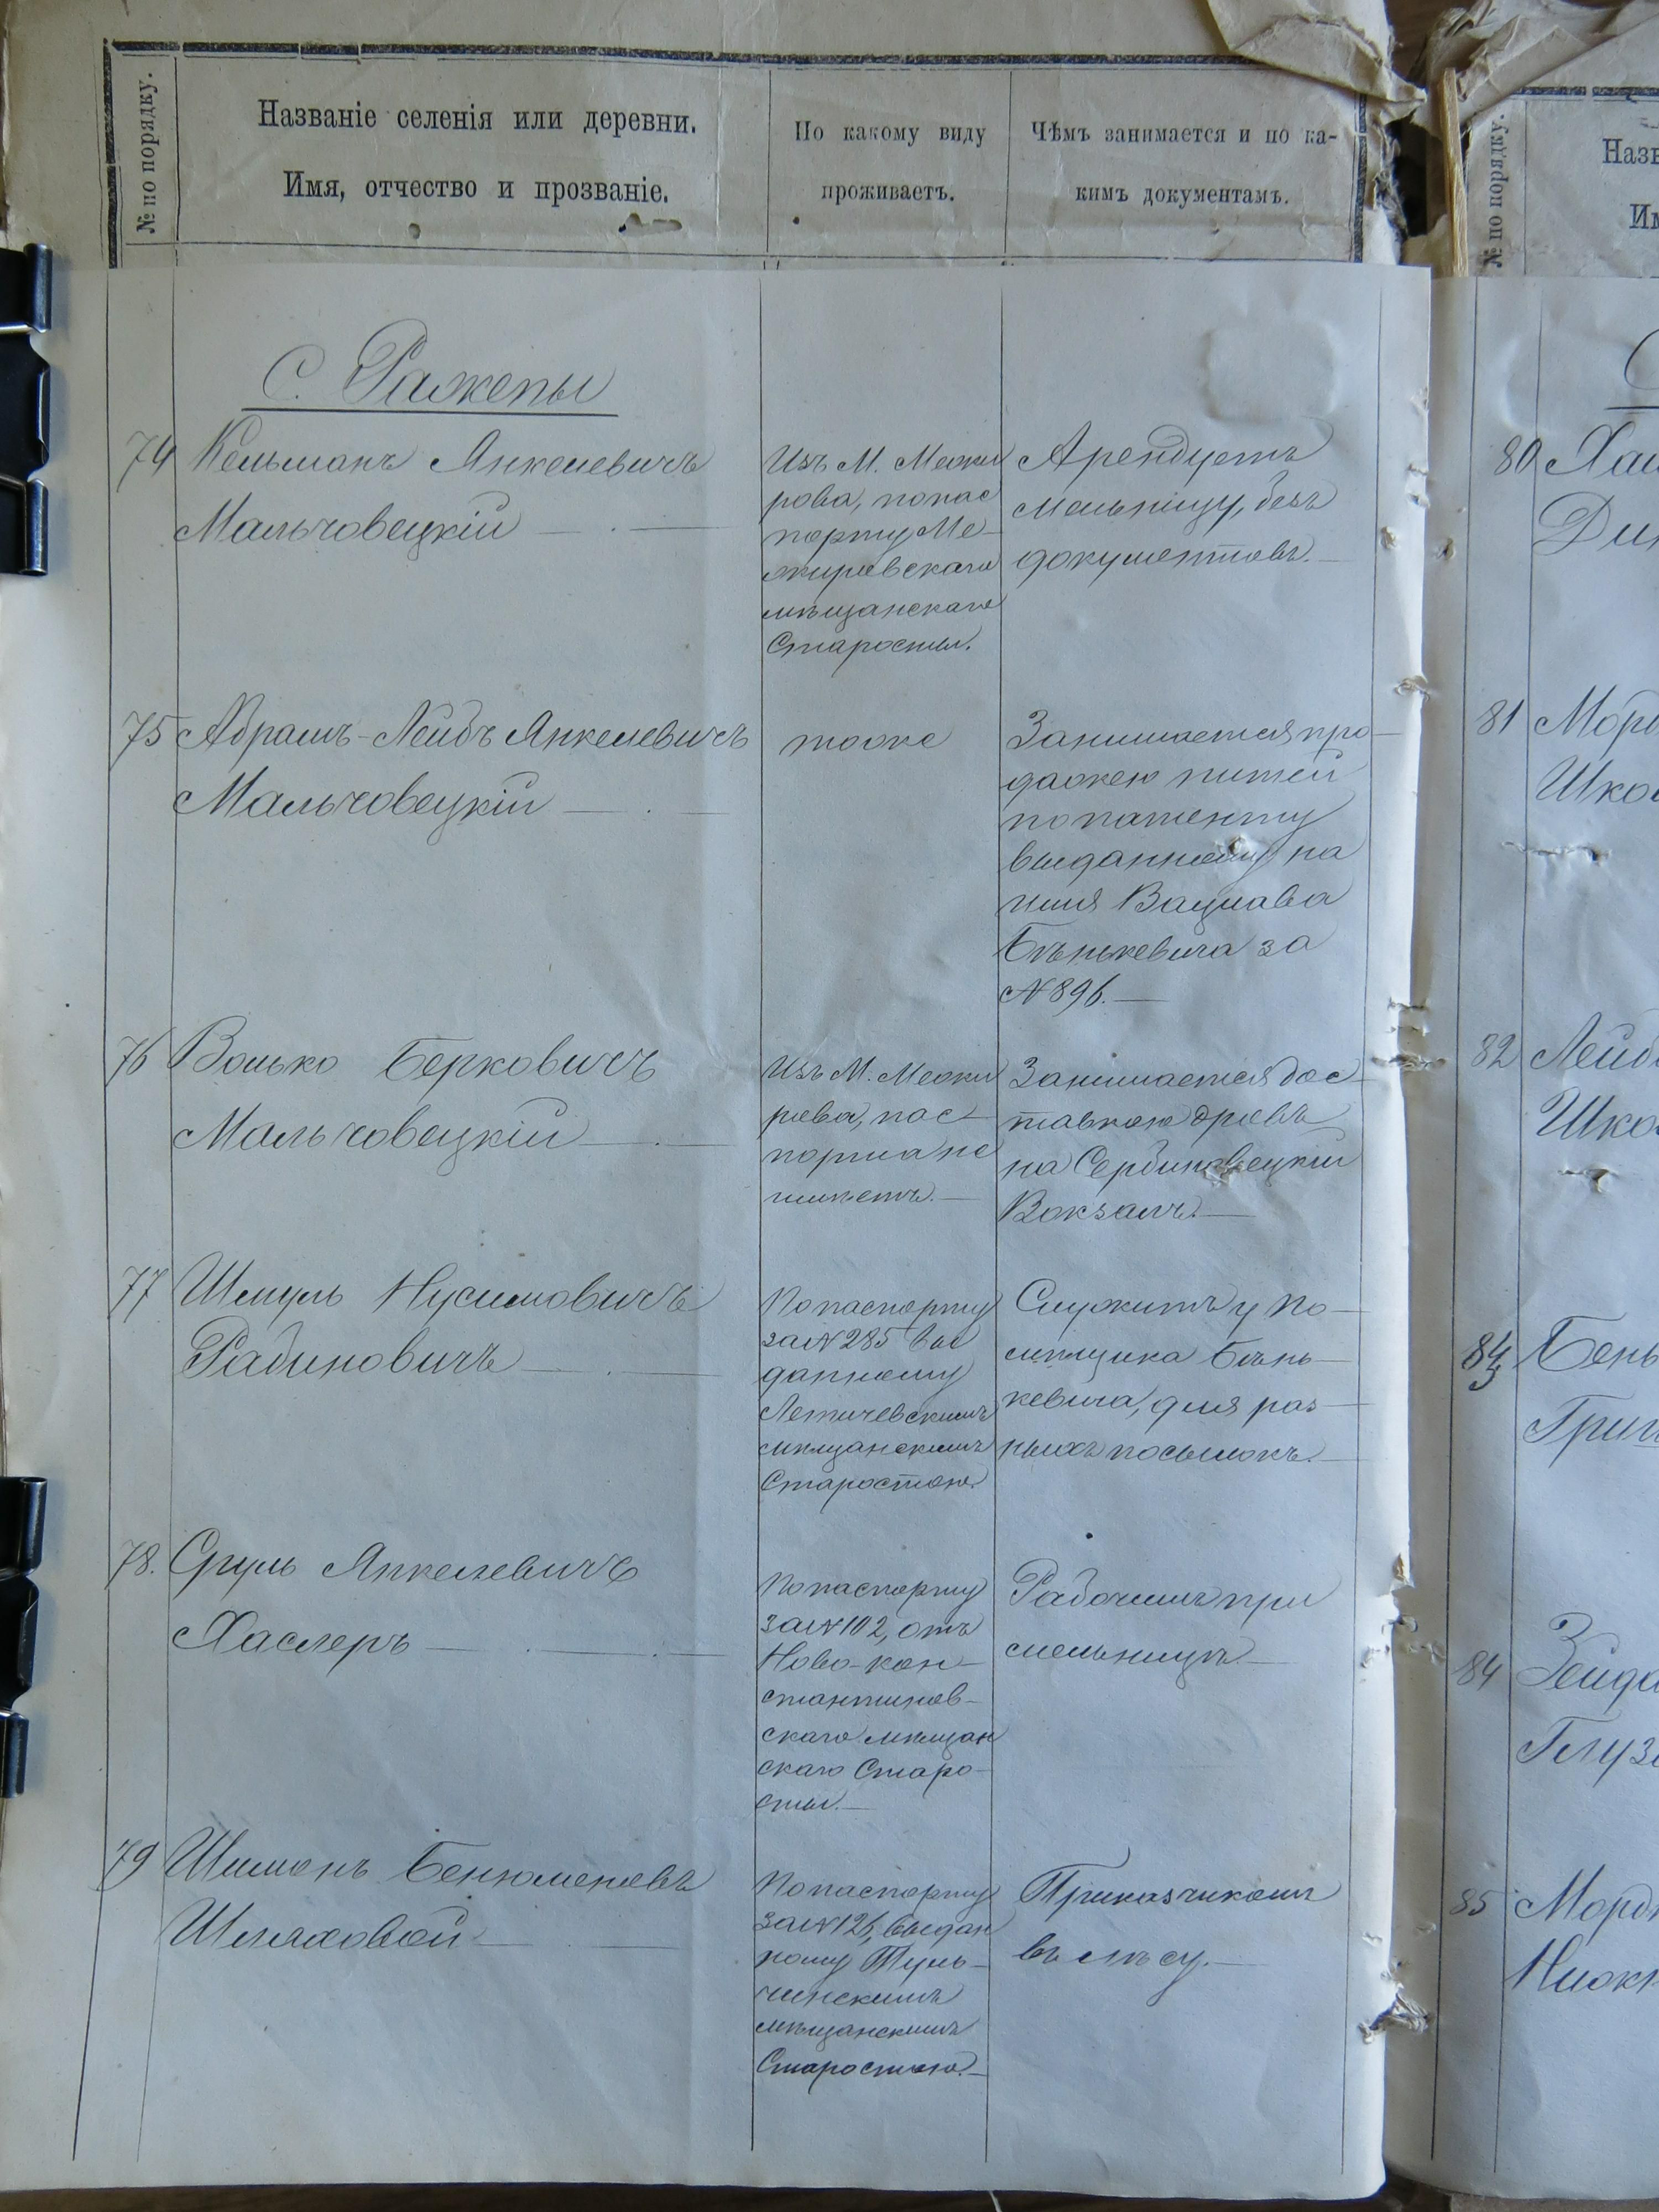 № по порядку.
Названіе селенія или деревни.
Имя, отчество и прозваніе.
По какому виду
проживаетъ.
Чѣмъ занимается и по ка-
кимъ документамъ.
С. Рожепы
74 Кельманъ Янкелевичъ
Мальчовецкій
Изъ М. Межи
рова, по пас
порту Ме-
жировскаго
мѣщанскаго
Старосты.
Арендуетъ
мельницу, безъ
документовъ.
75 Абрамъ-Лейбъ Янкелевичъ
Мальчовецкій
тоже
Занимается про-
дажею питей
по патенту
выданному на
имя Вацлава
Бѣнькевича за
№ 896.
76 Волько Берковичъ
Мальчовецкій
Изъ М. Межи
рова, пас-
порта не
имѣетъ.
Занимается дос-
тавкою дровъ
на Сербиновецкій
Вокзалъ.
77 Шмуль Нусимовичъ
Рабиновичъ
По паспорту
за № 285 вы
данному
Летичевскимъ
мѣщанскимъ
Старостою.
Служитъ у по-
мѣщика Бѣнь-
кевича, для раз-
ныхъ посылокъ.
78. Сруль Янкелевичъ
Хаслеръ
По паспорту
за № 102, отъ
Ново-кон-
стантинов-
скаго мѣщан
скаго Старо-
сты.
Рабочимъ при
мельницѣ.
79 Шимонъ Бенюменовъ
Шляховой
По паспорту
за № 126, выдан
ному Туль-
чинскимъ
мѣщанскимъ
Старостою.
Приказчикомъ
въ лѣсу.
№ по порядку.
Назв
Им
80 Хаи
81 Морд
Шко
82 Лейб
Шко
83 Бень
84 Зейда
Глуз
85 Морд